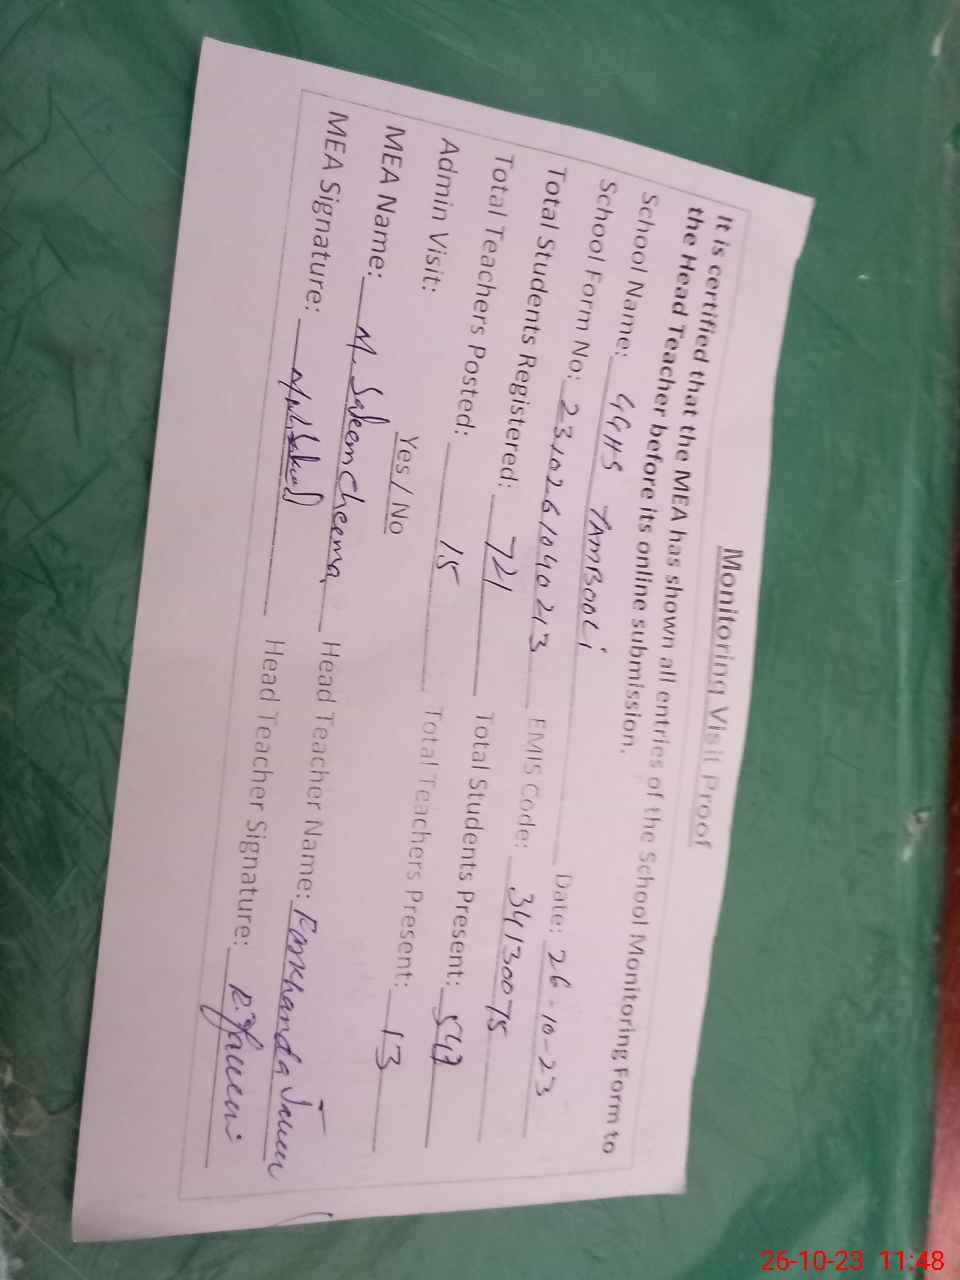 Monitoring Visit Proof
It is certified that the MEA has shown all entries of the School Monitoring Form to
the Head Teacher before its online submission.
School Name: GGHS TAMBOOLI Date: 26-10-23
School Form No: 231026104 0213 EMIS Code: 34130075
Total Students Registered: 721 Total Students Present: 547
Total Teachers Posted: 15 Total Teachers Present: 13
Admin Visit: Yes / No
MEA Name: M. Saleem Cheema Head Teacher Name:
MEA Signature: Head Teacher Signature:
26-10-23 11:48